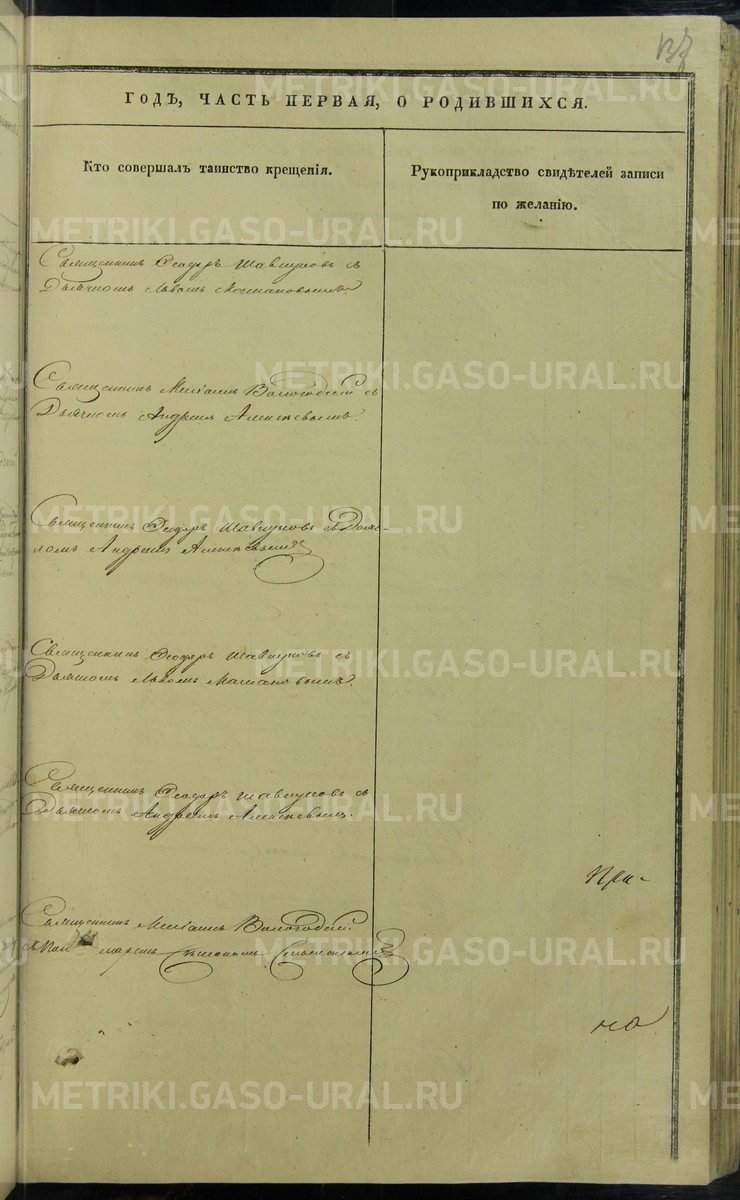 137
ГОДЪ, ЧАСТЬ ПЕРВАЯ, О РОДИВШИХСЯ.
Кто совершалъ таинство крещенія.
Рукоприкладство свидѣтелей записи
по желанію.
Священникъ Ѳеодоръ Шавкуновъ съ
Дьячкомъ
Священникъ Михаилъ Вологодскій съ
Дьячкомъ Андреемъ Алексѣевымъ.
Священникъ Ѳеодоръ Шавкуновъ съ Дьяч-
комъ Андреемъ Алексѣевымъ
Священникъ Ѳеодоръ Шавкуновъ съ
Дьячкомъ
Священникъ Ѳеодоръ Шавкуновъ съ
Дьячкомъ Андреемъ Алексѣевымъ.
При-
Священникъ Михаилъ Вологодскій
но
METRIKI.GASO-URAL.RU